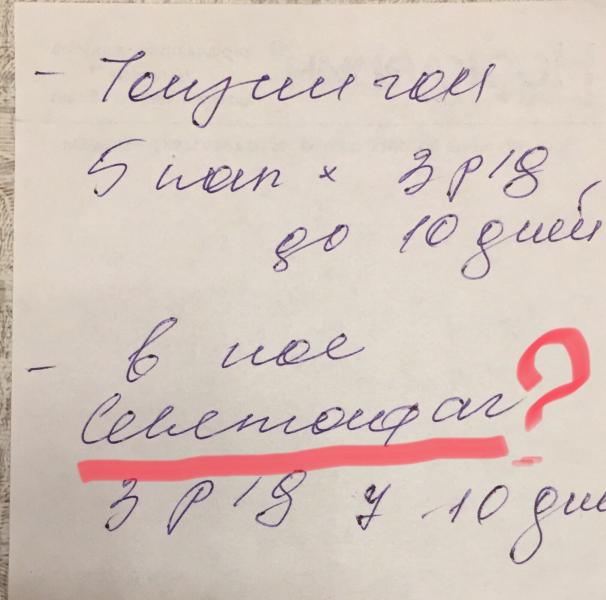 - Тонзилгон
5 кап × 3 р/д
до 10 дней
- в нос
?
3 р/д 7-10 дне